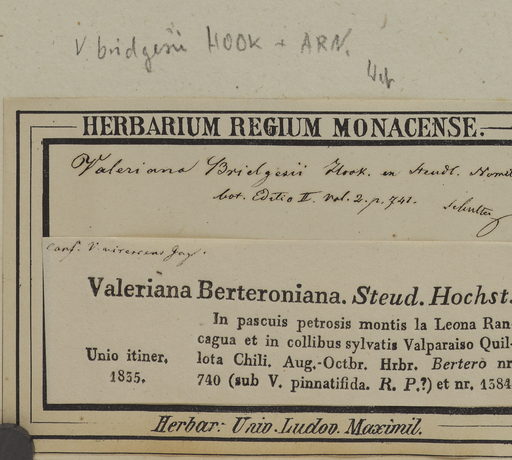 V. bridgesii HOOK + ARN.
HERBARIUM REGIUM MONACENSE.
Valeriana Bridgesii Hook. in Steudl. Nomel
bot. Editio II. vol. 2. p. 741.
conf. V. virescens
Valeriana Berteroniana. Steud. Hochst.
In pascuis petrosis montis la Leona Ran-
cagua et in collibus sylvatis Valparaiso Quil-
Unio itiner, lota Chili. Aug.-Octbr. Hrbr. Bertero nr
1835. 740 (sub V. pinnatifida. R. P.?) et nr. 1384
Herbar: Univ. Ludov. Maximil.